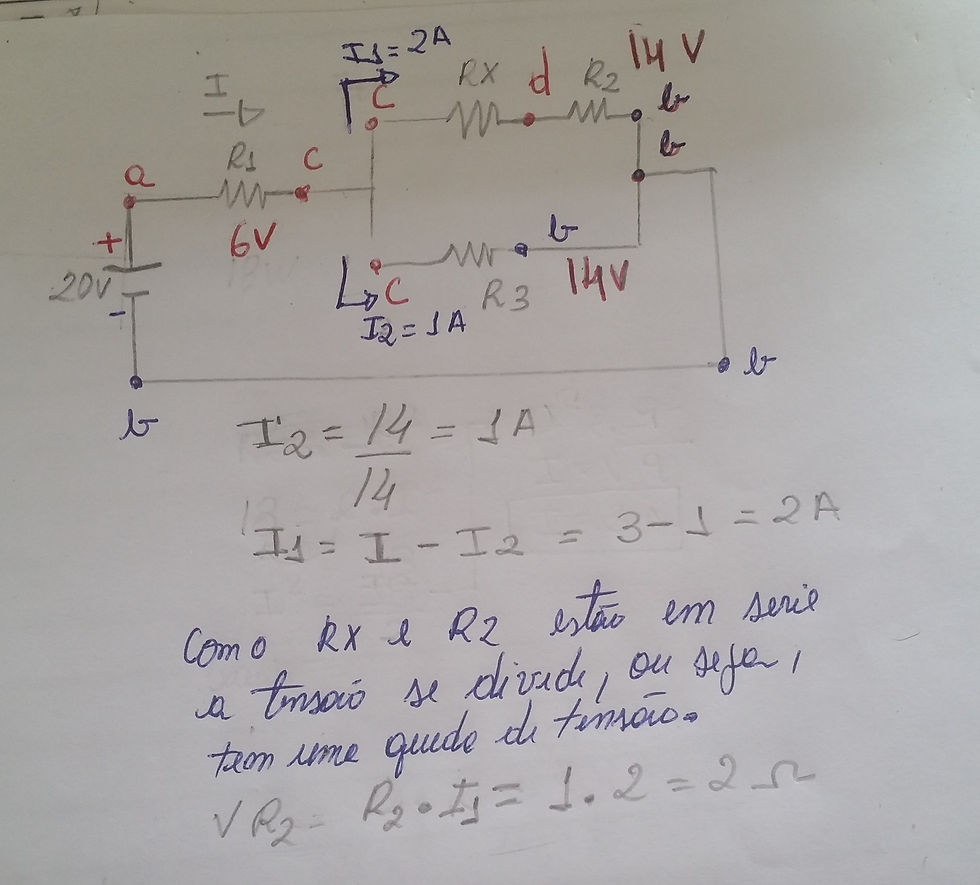 I1 = 2A
14 V
I
C
RX
d
R2
b
b
R1
C
a
b
+
6V
20V
C
R3
14V
-
I2 = 1A
b
b
I2 = 14/14 = 1A
I1 = I - I2 = 3 - 1 = 2A
Como RX e R2 estão em serie
a tensão se divide, ou seja,
tem uma queda de tensão.
VR2 = R2 . I1 = 1 . 2 = 2 Ω